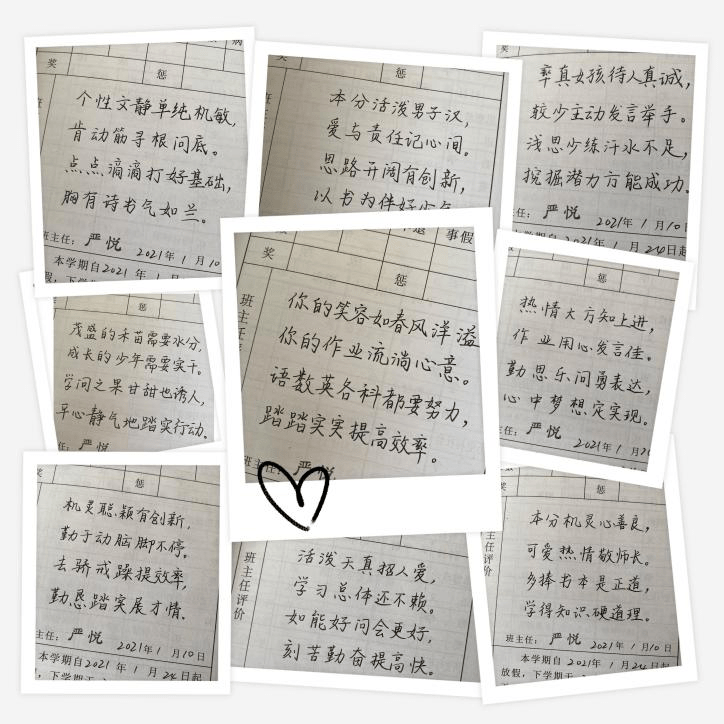 奖
惩
个性文静单纯机敏,
肯动筋寻根问底。
点点滴滴打好基础,
胸有诗书气如兰。
主任: 严悦 2021年 1 月10
本学期自2021 年 1 月
奖
惩
本分活泼男子汉,
爱与责任记心间。
思路开阔有创新,
奖
率真女孩待人真诚,
较少主动发言举手。
浅思少练汗水不足,
挖掘潜力方能成功.
任: 严悦 2021年 1 月10日
2021 年 1 月24日起
惩
茂盛的禾苗需要水分,
成长的少年需要实干。
学问之果甘甜也诱人,
平心静气地踏实行动.
任: 严悦
事假
奖
惩
班主任
你的笑容如春风洋溢
你的作业流淌心意。
语数英各科都要努力,
踏踏实实提高效率。
惩
热情大方知上进,
作业用心发言佳。
勤思乐问勇表达,
心中梦想定实现。
任: 严悦 2021年 1 月
奖
惩
机灵聪颖有创新,
勤于动脑脚不停.
去骄戒躁提效率,
勤恳踏实展才情.
主任: 严悦 2021年 1 月10日
本学期自2021 年 1 月24日起
班主任评价
活泼天真招人爱,
学习总体还不赖.
如能好问会更好,
刻苦勤奋提高快。
奖
惩
主任评价
本分机灵心善良,
可爱热情敬师长。
多捧书本是正道,
学得知识硬道理。
班主任: 严悦 2021年 1 月10日
本学期自2021 年 1 月24日起
放假, 下学期于